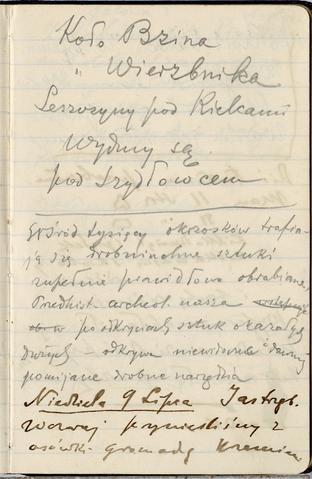 Koło Bzina
" Wierzbnika
Leszczyny pod Kielcami
Wydmy są
pod Szydłowcem
Wśród tysięcy okrzosków trafia-
ją się drobniuchne sztuki
zupełnie prawidłowo obrabiane.
Predhist. archeol. nasza
po odkryciach sztuk okazałych
dużych – odkrywa niewidziane dawniej
pomijane drobne narzędzia
Niedziela 9 Lipca Jastrzęb.
Wczoraj przynieśliśmy z
osówki gromadę krzemieni